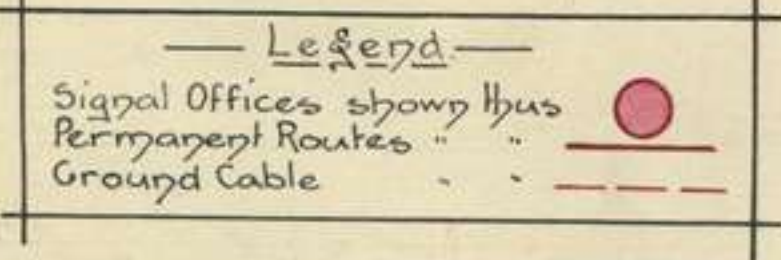 Legend
Signal Offices shown thus
Permanent Routes " "
Ground Cable " "